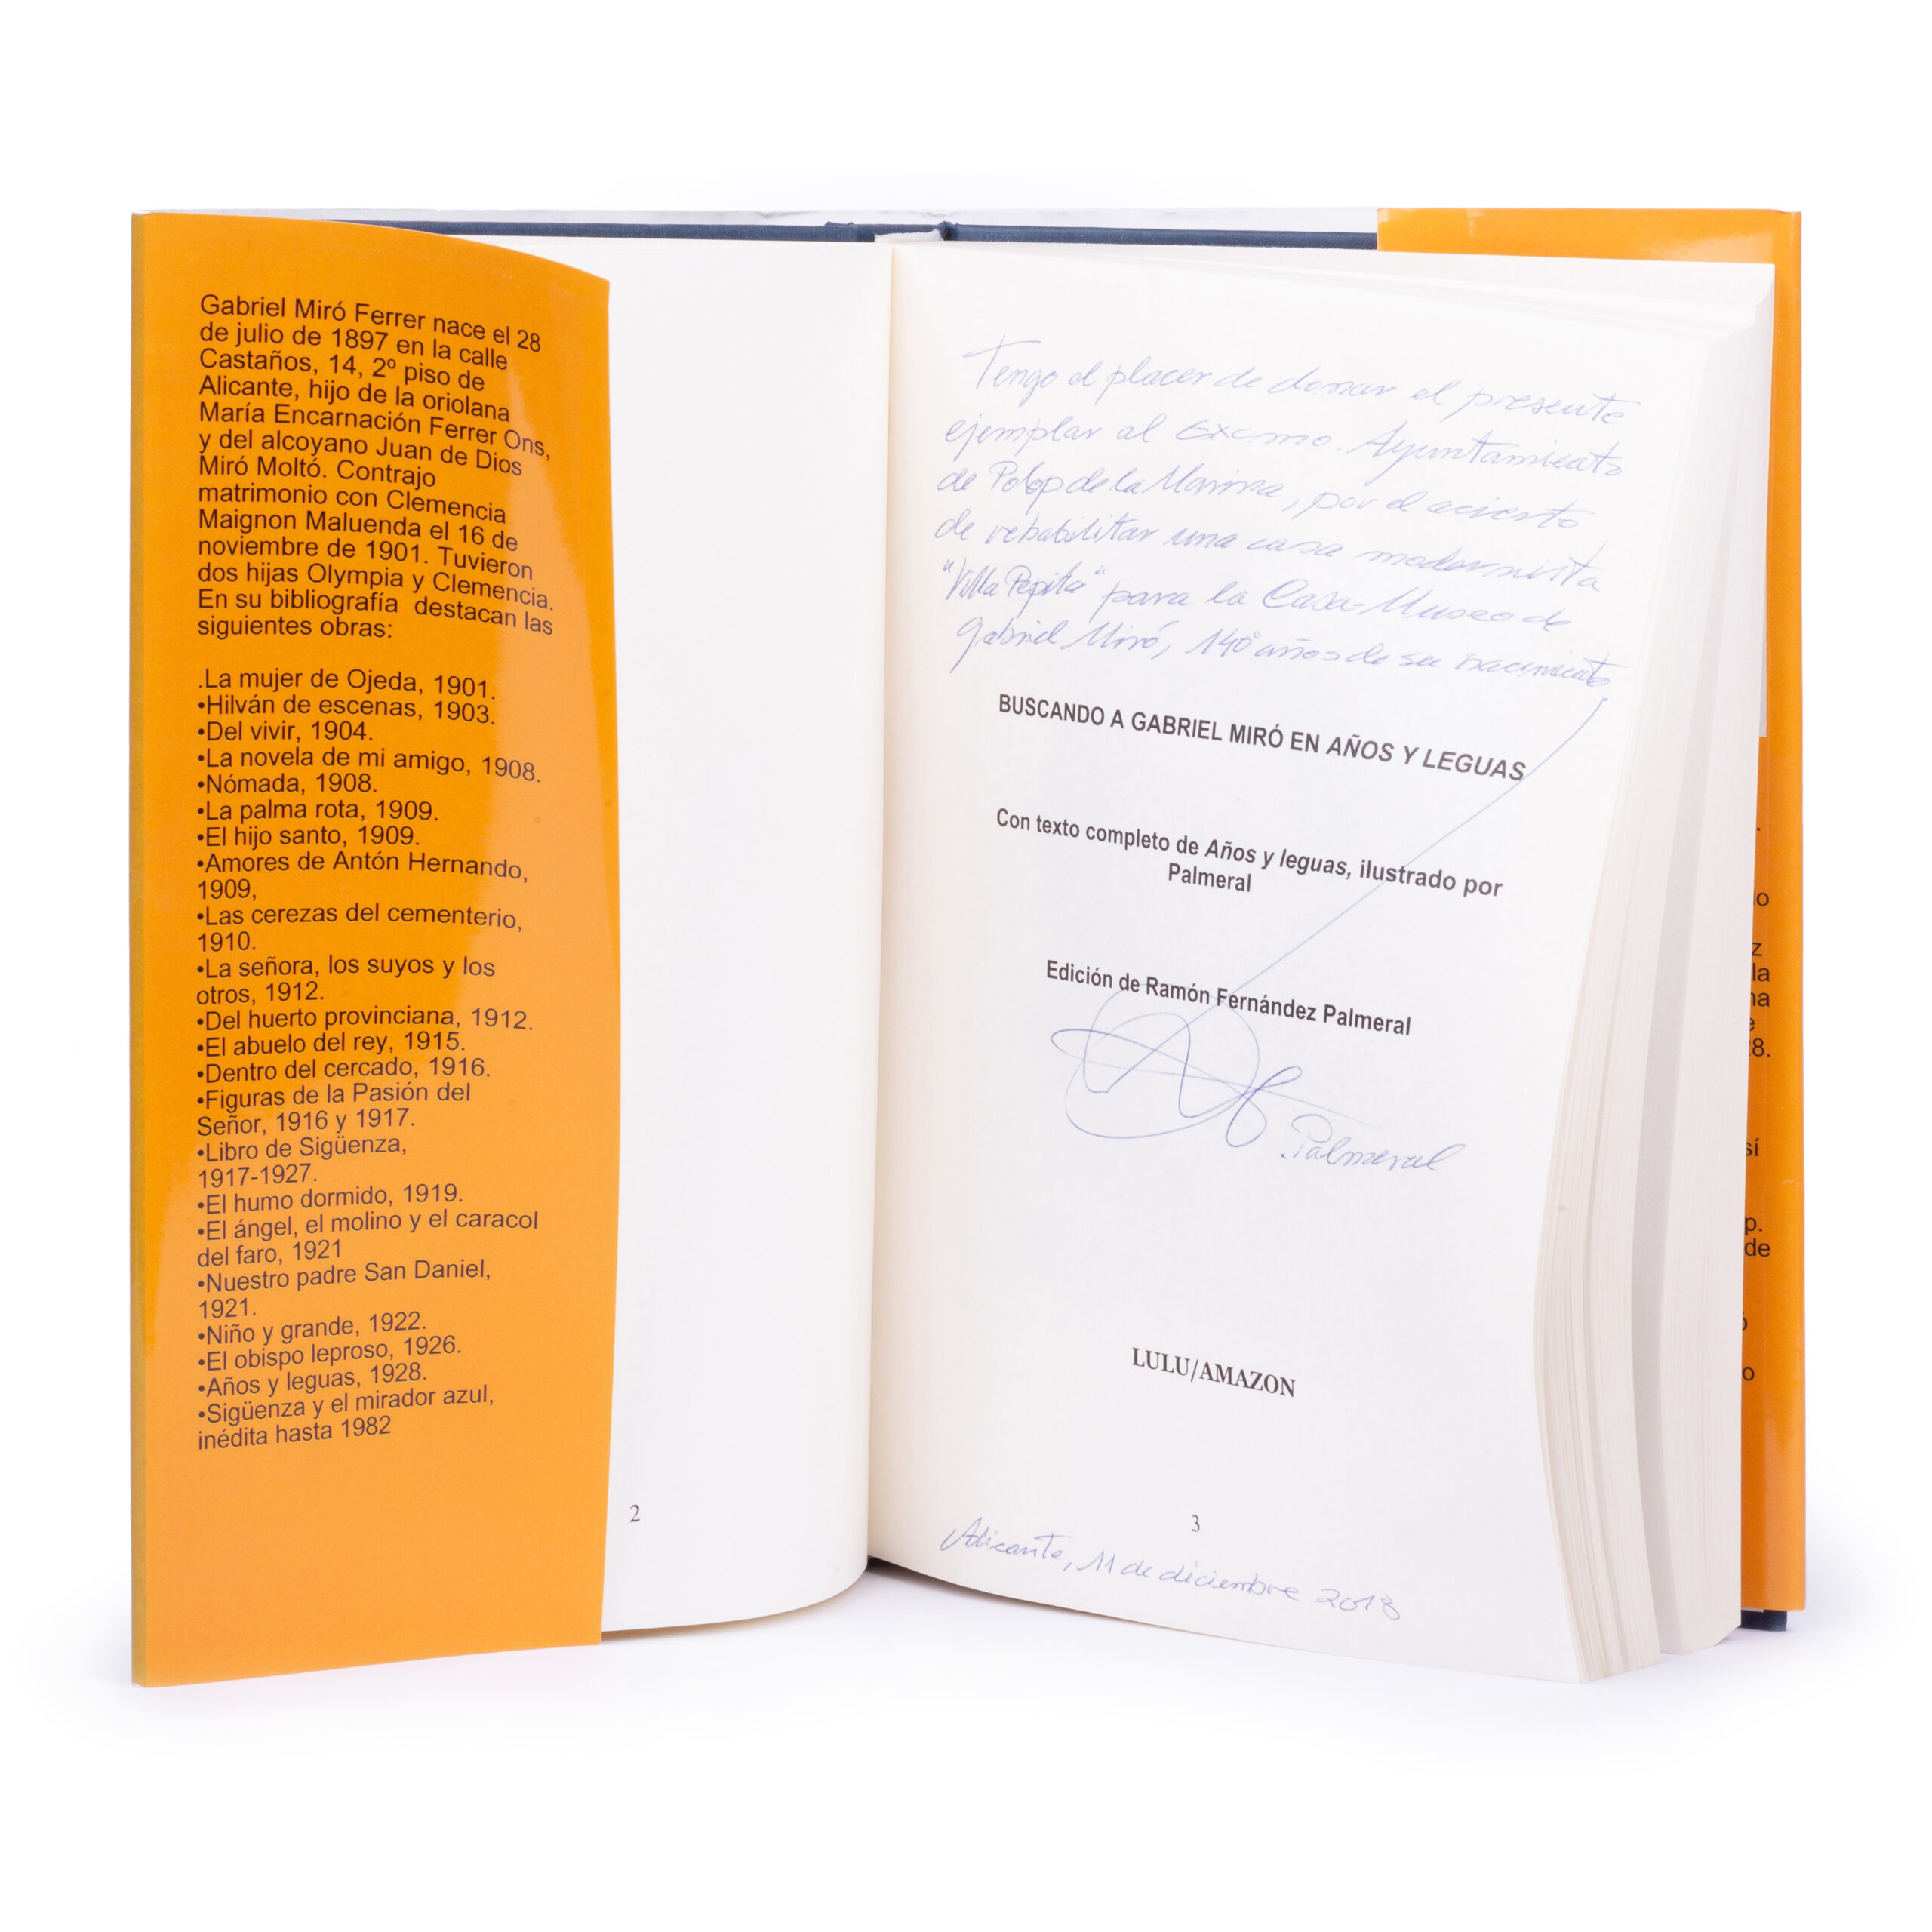 Gabriel Miró Ferrer nace el 28
de julio de 1897 en la calle
Castaños, 14, 2º piso de
Alicante, hijo de la oriolana
María Encarnación Ferrer Ons,
y del alcoyano Juan de Dios
Miró Moltó. Contrajo
matrimonio con Clemencia
Maignon Maluenda el 16 de
noviembre de 1901. Tuvieron
dos hijas Olympia y Clemencia.
En su bibliografía destacan las
siguientes obras:
.La mujer de Ojeda, 1901.
•Hilván de escenas, 1903.
•Del vivir, 1904.
•La novela de mi amigo, 1908.
•Nómada, 1908.
•La palma rota, 1909.
•El hijo santo, 1909.
•Amores de Antón Hernando,
1909,
•Las cerezas del cementerio,
1910.
•La señora, los suyos y los
otros, 1912.
•Del huerto provinciana, 1912.
•El abuelo del rey, 1915.
•Dentro del cercado, 1916.
•Figuras de la Pasión del
Señor, 1916 y 1917.
•Libro de Sigüenza,
1917-1927.
•El humo dormido, 1919.
•El ángel, el molino y el caracol
del faro, 1921
•Nuestro padre San Daniel,
1921.
•Niño y grande, 1922.
•El obispo leproso, 1926.
•Años y leguas, 1928.
•Sigüenza y el mirador azul,
inédita hasta 1982
2
Tengo el placer de donar el presente
ejemplar al Excmo. Ayuntamiento
de Polop de la Marina, por el acierto
de rehabilitar una casa modernista
"Villa Pepita" para la Casa-Museo de
Gabriel Miró, 140 años de su nacimiento
BUSCANDO A GABRIEL MIRÓ EN AÑOS Y LEGUAS
Con texto completo de Años y leguas, ilustrado por
Palmeral
Edición de Ramón Fernández Palmeral
Palmeral
LULU/AMAZON
3
Alicante, 11 de diciembre
o
z
la
na
e
28.
sí
p.
de
o